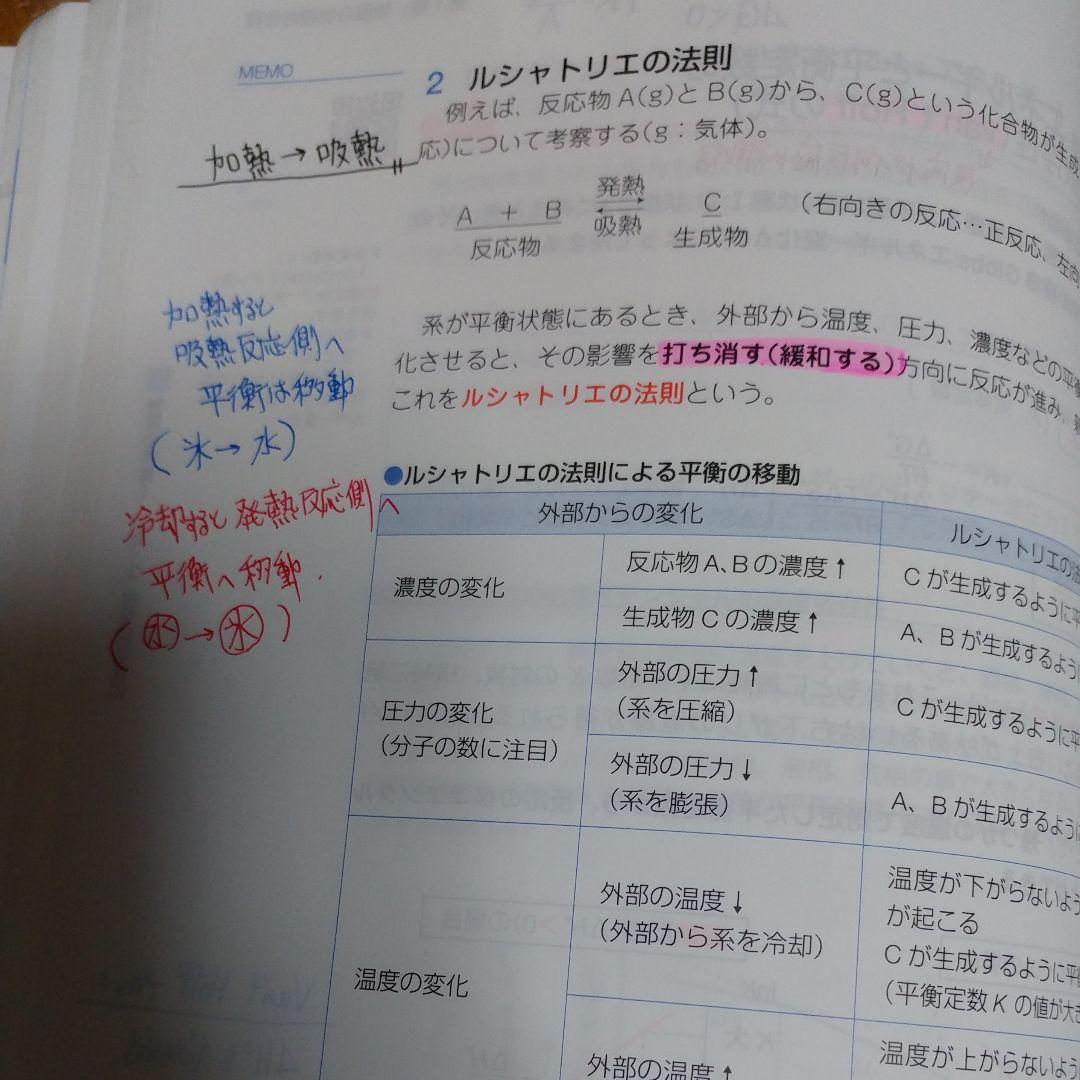 MEMO
加熱→吸熱
加熱すると
吸熱反応側へ
平衡は移動
(氷→水)
冷却すると発熱反応側へ
平衡へ移動.
(水→氷)
2 ルシャトリエの法則
例えば、反応物A(g)とB(g)から、C(g)という化合物が生成
応)について考察する(g:気体)。
発熱
A + B ⇄ C (右向きの反応…正反応、左向
吸熱
反応物 生成物
系が平衡状態にあるとき、外部から温度、圧力、濃度などの平衡
化させると、その影響を打ち消す(緩和する)方向に反応が進み、
これをルシャトリエの法則という。
●ルシャトリエの法則による平衡の移動
外部からの変化 ルシャトリエの
濃度の変化
反応物A、Bの濃度↑ Cが生成するように平
生成物Cの濃度↑ A、Bが生成するように
圧力の変化
(分子の数に注目)
外部の圧力↑
(系を圧縮)
Cが生成するように平
外部の圧力↓
(系を膨張)
A、Bが生成するように
温度の変化
外部の温度↓
(外部から系を冷却)
温度が下がらないよう
が起こる
Cが生成するように平
(平衡定数Kの値が大き
外部の温度↑
温度が上がらないよう